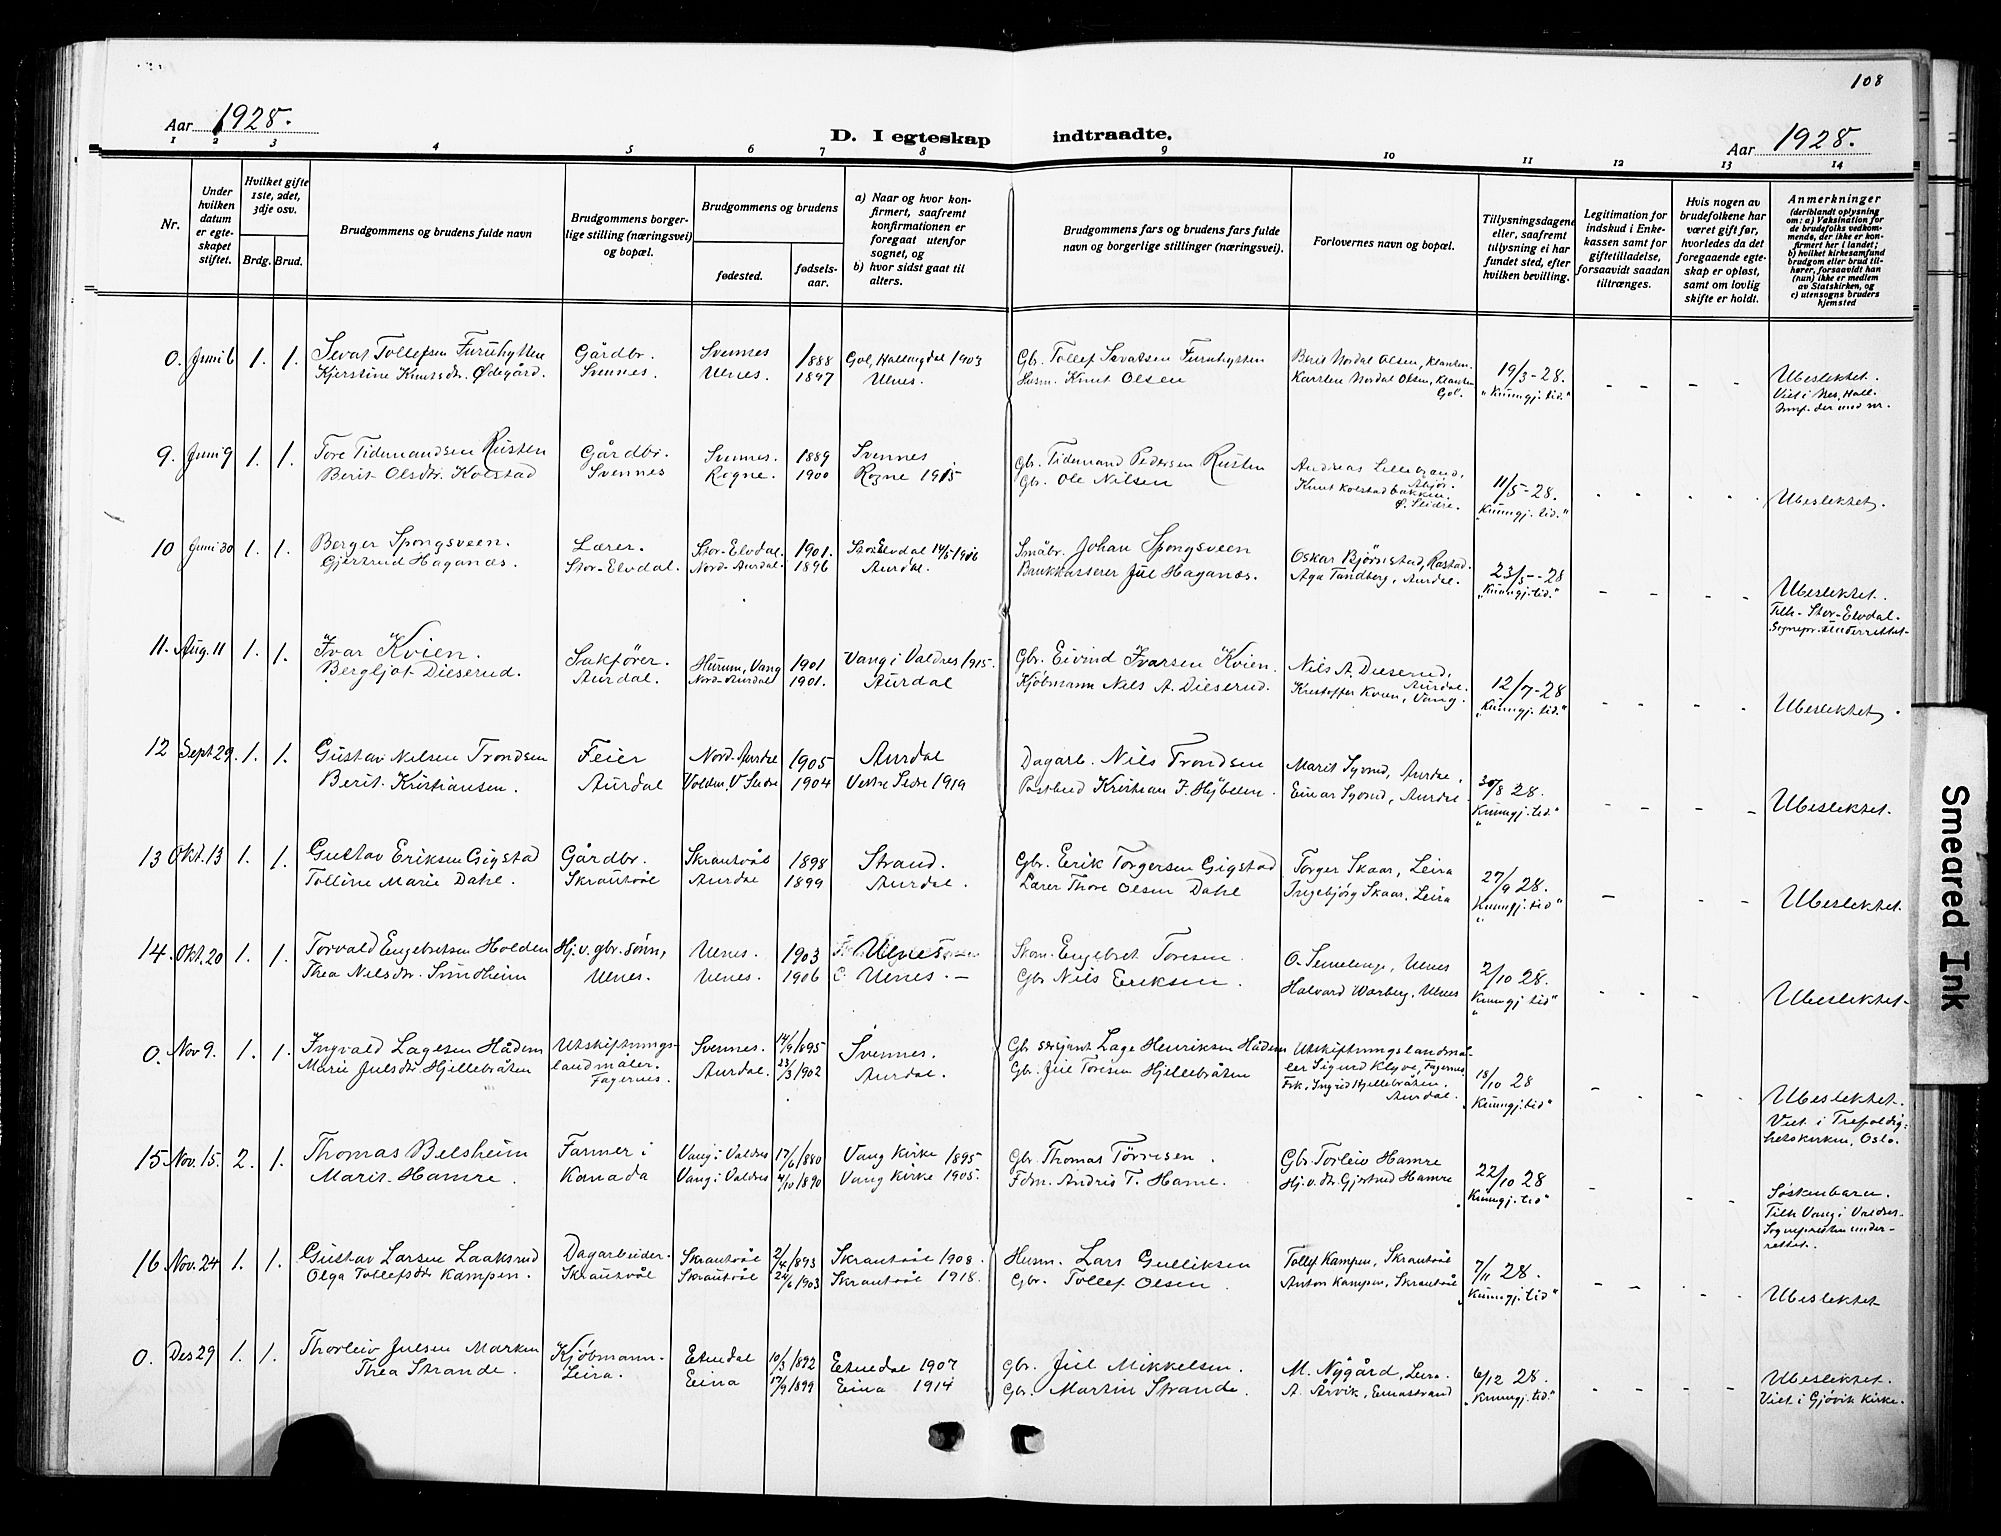 108
Aar 1928.
D. I egteskap indtraadte.
Aar 1928.
1 2 3 4 5 6 7 8 9 10 11 12 13 14
Nr.
Under hvilken datum er egteskapet stiftet.
Hvilket gifte 1ste, 2det, 3dje osv.
Brdg. Brud.
Brudgommens og brudens fulde navn
Brudgommens borgerlige stilling (næringsvei) og bopæl.
Brudgommens og brudens
fødested.
fødselsaar.
a) Naar og hvor konfirmert, saafremt konfirmationen er foregaat utenfor sognet, og
b) hvor sidst gaat til alters.
Brudgommens fars og brudens fars fulde navn og borgerlige stillinger (næringsvei).
Forlovernes navn og bopæl.
Tillysningsdagene eller, saafremt tillysning ei har fundet sted, efter hvilken bevilling.
Legitimation for indskud i Enkekassen samt for giftetilladelse, forsaavidt saadan tiltrænges.
Hvis nogen av brudefolkene har været gift før, hvorledes da det foregaaende egteskap er opløst, samt om lovlig skifte er holdt.
Anmerkninger
(deriblandt oplysning om: a) Vaksination for de brudefolks vedkommende, der ikke er konfirmert her i landet; b) hvilket kirkesamfund brudgom eller brud tilhører, forsaavidt han (hun) ikke er medlem av Statskirken, og c) utensogns bruders hjemsted
0. Juni 6 1. 1. Sevat Tollefsen Furuhytten Gårdbr. Svennes 1888 Gol, Hallingdal 1903 Gb. Tollef Sevatsen Furuhytten Berit Nordal Olsen, Klanten. 19/3-28.
Kjerstine Knutsdtr. Ødegård. Svennes. Ulnes. 1897 Ulnes. Husm. Knut Olsen Karsten Nordal Olsen, Klanten Gol. "Kunngj. tid." Ubeslektet.
Viet i Nes, Hall.
9. Juni 9 1. 1. Tore Tidemandsen Rusten Gårdbr. Svennes. 1889 Svennes Gb. Tidemand Pedersen Rusten Andreas Lillebrand,
Berit Olsdtr. Kolstad Svennes Rogne. 1900 Rogne 1915 Gb. Ole Nilsen Knut Kolstadbakken. Ø. Slidre. 11/5-28. "Kunngj. tid." Ubeslektet.
10 Juni 30 1. 1. Berger Spongsveen. Lærer. Stor-Elvdal. 1901. Stor-Elvdal 14/5 1916 Småbr. Johan Spongsveen Oskar Bjørnstad,
Gjertrud Haganæs. Stor-Elvdal. Nord-Aurdal. 1896 Aurdal. Brukkasserer Jul Haganæs. Aga Tandberg, Aurdal. 23/5-28 "Kunngj. tid." Ubeslektet.
Tilh. Stor-Elvdal.
Sognepr. underrettet.
11. Aug. 11 1. 1. Ivar Kvien. Sakfører. Hurum, Vang 1901 Vang i Valdres 1915. Gb. Eivind Ivarsen Kvien. Nils A. Dieserud, Aurdal.
Bergljot Dieserud. Aurdal. Nord-Aurdal 1901. Aurdal Kjøbmann Nils A. Dieserud. Kristoffer Kvien, Vang. 12/7-28 "Kunngj. tid." Ubeslektet.
12 Sept. 29. 1. 1. Gustav Nilsen Trondsen Feier Nord-Aurdal 1905 Aurdal Dagarb. Nils Trondsen Marit Syvrud, Aurdal.
Berit Kristiansen. Aurdal Volden, V Slidre 1904 Vestre Slidre 1919 Postbud Kristian F. Højbelen. Einar Syvrud, Aurdal 30/8 28. Kunngj. tid." Ubeslektet.
13 Okt. 13 1. 1. Gustav Eriksen Gigstad Gårdbr. Skrautvål 1898 Strand. Gbr. Erik Torgersen Gigstad Torger Skaar, Leira
Tolline Marie Dahl. Skrautvål Aurdal 1899 Aurdal. Lærer Thore Olsen Dahl Ingebjørg Skaar, Leira 27/9 28. Kunngj. tid" Ubeslektet.
14. Okt. 20 1. 1. Torvald Engebretsen Holden Hj.v. gbr. sønn, Ulnes. 1903 Ulnes Skom. Engebret Toresen. O. Semelenge, Ulnes
Thea Nilsdtr. Sundheim Ulnes. Ulnes. 1906 Ulnes. – Gbr Nils Eriksen. Halvard Warberg, Ulnes 2/10 28. Kunngj. tid" Ubeslektet.
0. Nov 9. 1. 1. Ingvald Lagesen Hådem Utskiftningslandmåler. Fagernes. Svennes. 14/9 1895 Svennes. Gbr sersjant Lage Henriksen Hådem Utskiftningslandmåler Sigurd Klyve, Fagernes
Marie Julsdtr. Hjellebråten Aurdal. 23/3 1902 Aurdal. Gbr. Jul Toresen Hjellebråten Frk. Ingrid Hjellebråten. Aurdal. 18/10 28 "Kunngj. tid" Ubeslektet.
Viet i Trefoldighetskirken, Oslo.
15. Nov. 15. 2. 1. Thomas Belsheim Farmer i Vang i Valdres 17/6 1880 Vang Kirke 1895 Gbr. Thomas Tørresen. Gbr. Torleiv Hamre
Marit Hamre. Kanada Vang i Valdres 4/10 1890 Vang Kirke 1905. Fdm. Andris T. Hamre. Hj.v. dtr. Gjertrud Hamre 22/10 28 "Kunngj. tid" Søskenbarn.
Tilh Vang i Valdres.
Sognepresten underrettet.
16 Nov. 24 1. 1. Gustav Larsen Laaksrud Dagarbeider Skrautvål 2/4 1893 Skrautvål 1908. Husm. Lars Gulliksen Tollef Kampen, Skrautvål
Olga Tollefsdtr. Kampen. Skrautvål Skrautvål 24/6 1903 Skrautvål 1918. Gbr. Tollef Olsen Anton Kampen, Skrautvål 7/11 28. "Kunngj. tid" Ubeslektet
0. Des 29 1. 1. Thorleiv Julsen Marken Kjøbmann Etnedal 10/3 1892 Etnedal 1907 Gbr. Jul Mikkelsen. M. Nygård, Leira.
Thea Strande. Leira. Eina 17/9 1899 Eina 1914 Gbr. Martin Strande. A. Årvik, Einastrand 6/12 28. "Kunngj. tid." Ubeslektet.
Viet i Gjøvik Kirke.
Smeared Ink